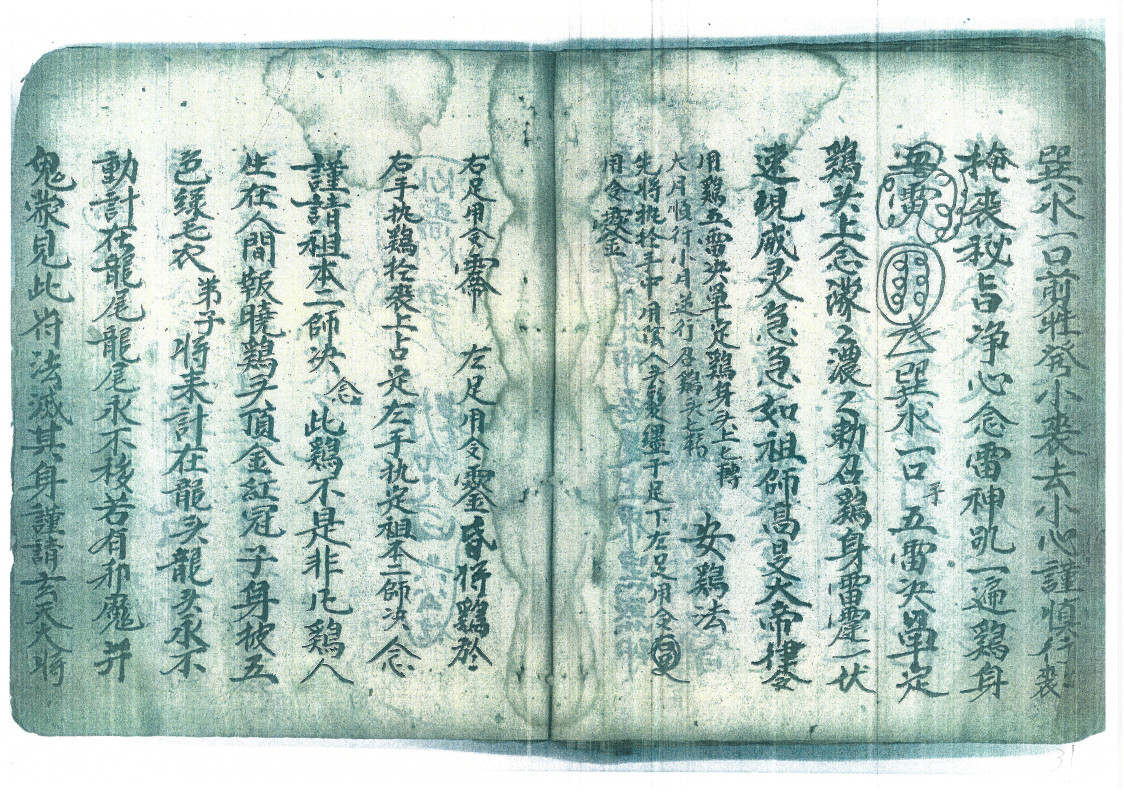 巽水一口前牲發小喪去小心謹慎行喪
掩喪秘旨净心念雷神咒一遍鷄身
五雷 巽水一口手五雷决單定
鷄头上念濛々濃々勅召鷄身雷霆一伏
速現威灵急急如祖師高旻大帝律令
用鷄五雷决單定鷄身头上七轉 安鷄法
大月順行小月逆行居鷄头七轉
先將执於手中用後人去髮纏于足下左足用令
用令
右足用令霈 左足用令 昏拼鷄於
右手执鷄於喪上占定左手执定祖本二師决念
謹請祖本二師决念此鷄不是非凡鷄人
生在人間報曉鷄子頂金紅冠子身披五
色緑毛衣弟子將来計在龍头龍头永不
動計在龍尾龍尾永不移若有邪魔并
鬼蒙見此符法滅其身謹請玄天大將